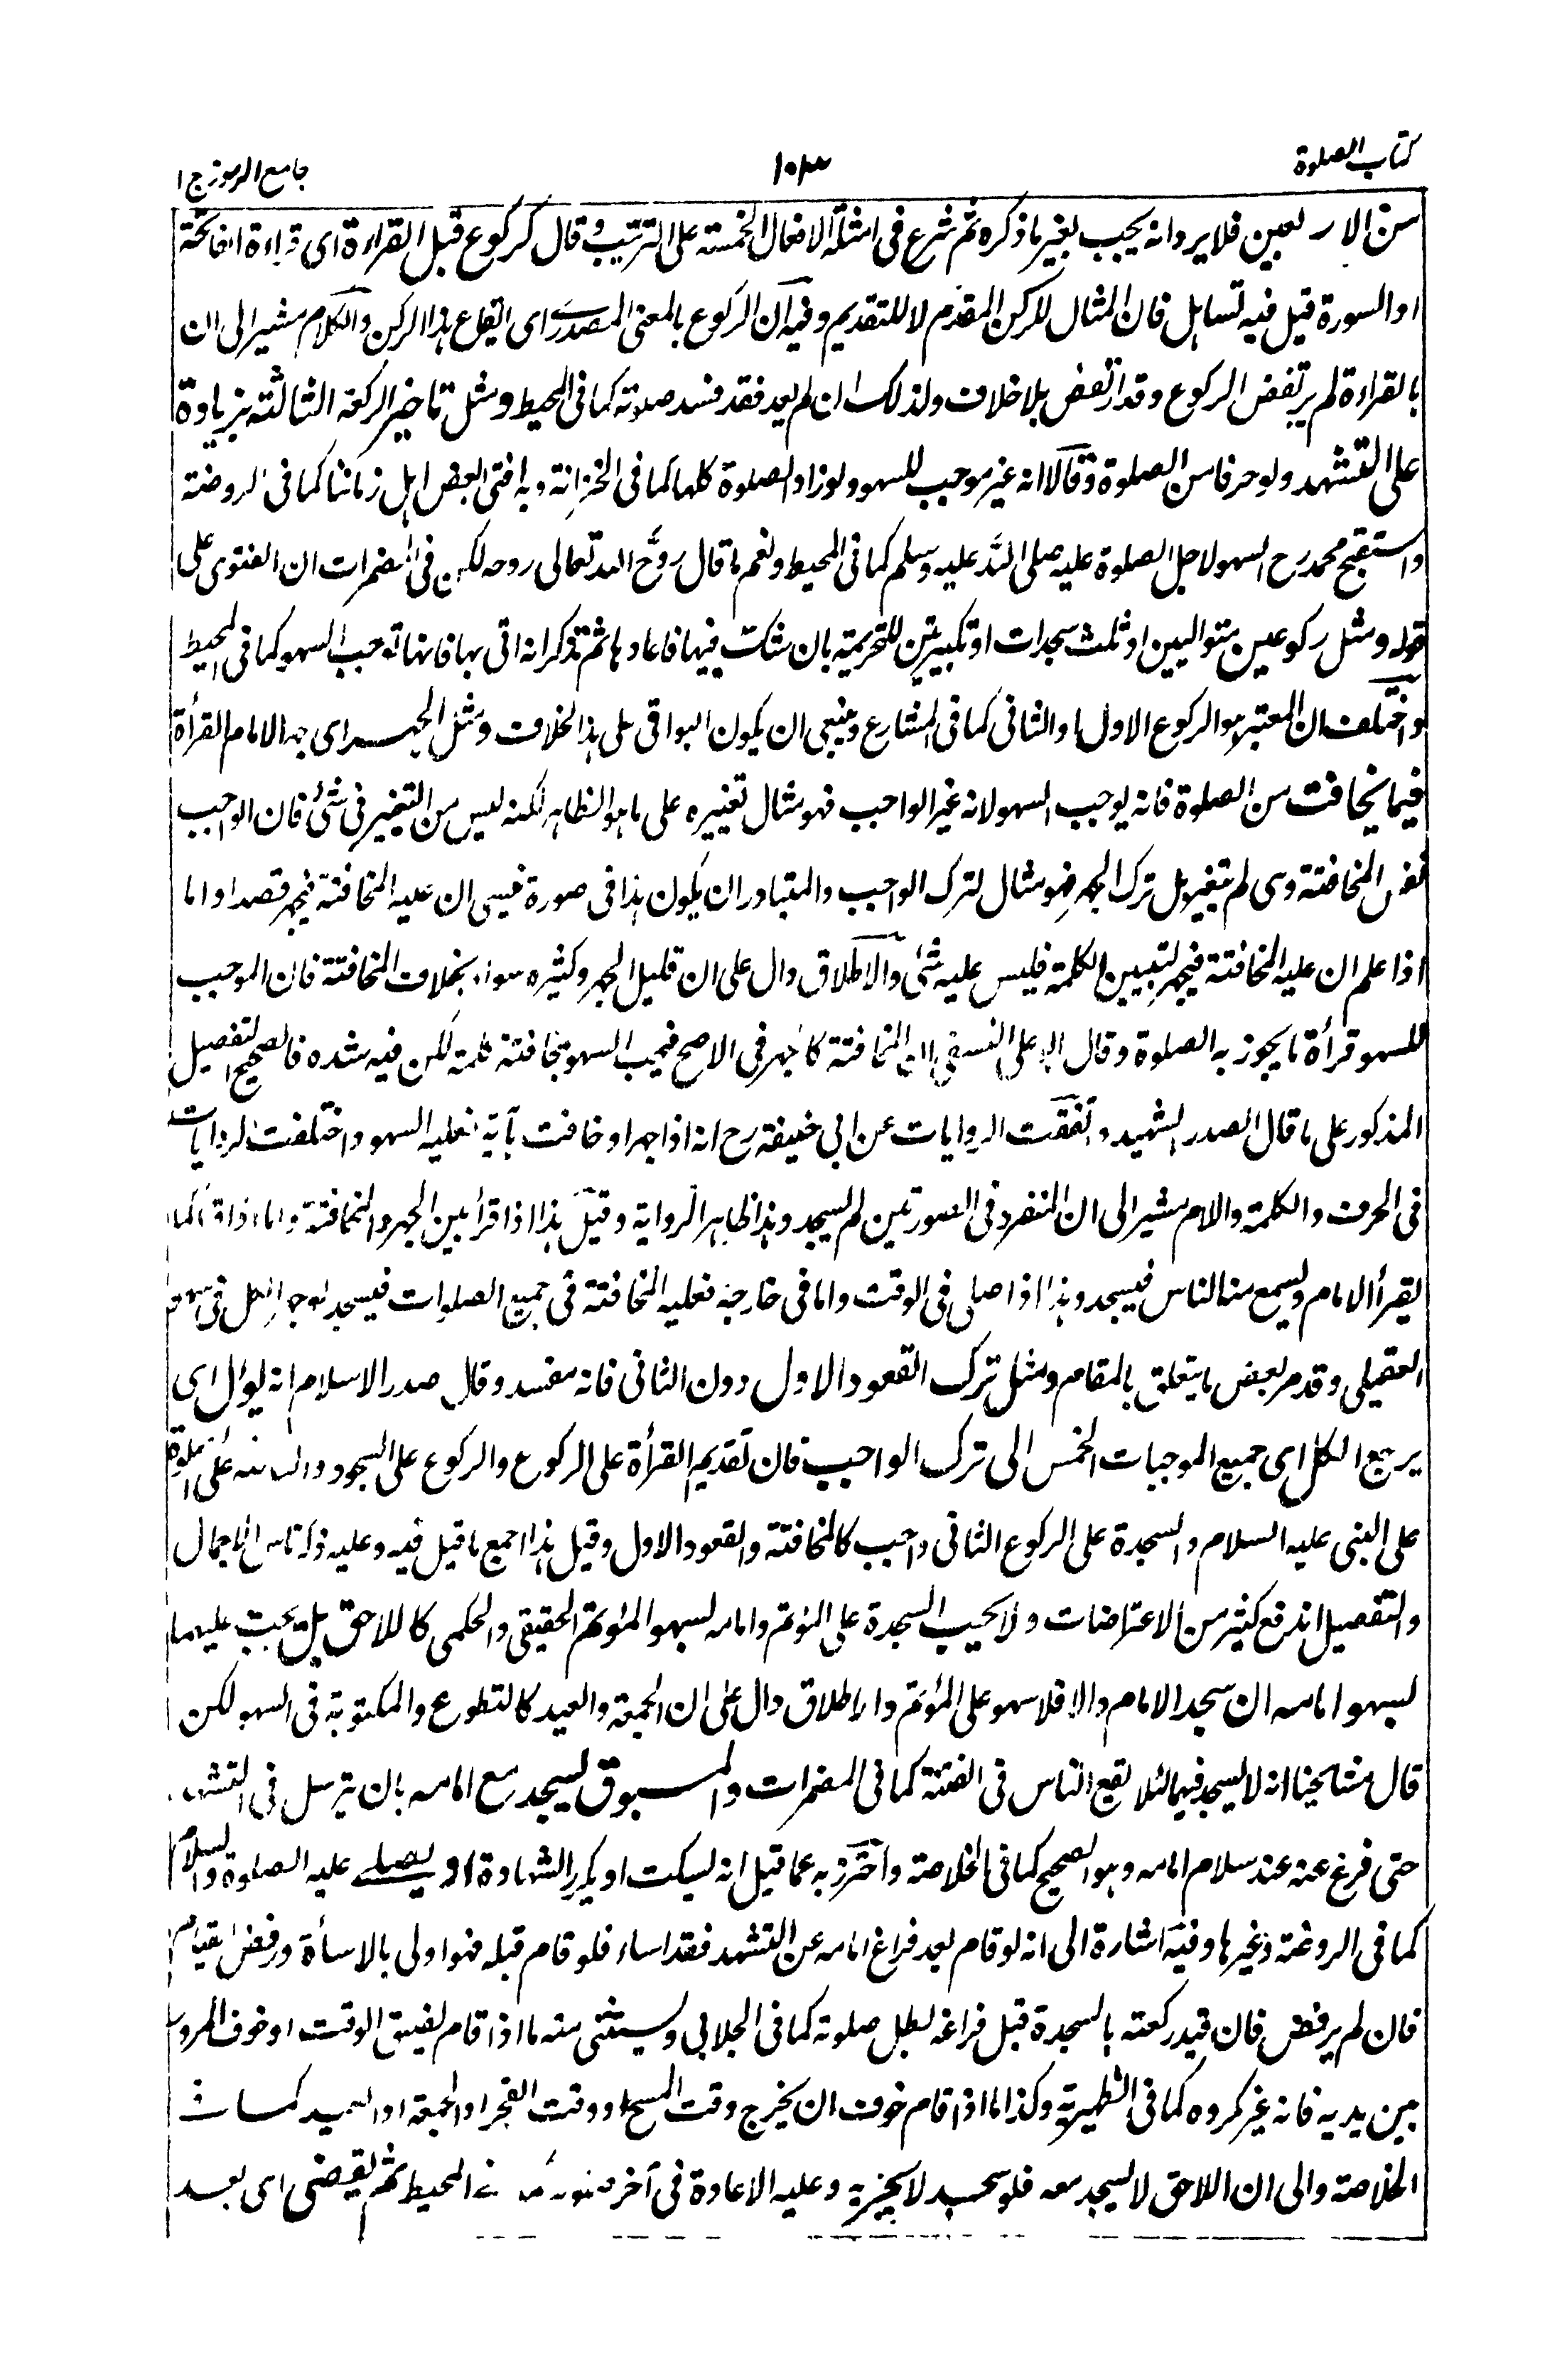 كتاب الصلوة
١٠٣
جامع الرموز ج ١
من الاربعين فلا يرد انه يجب لغير ما ذكره ثم شرع فى امثلة الافعال الخمسة على الترتيب وقال كركوع قبل القراءة اى قراءة الفاتحة
او السورة قيل فيه تساهل فان المثال للركن المقدم لا للتقديم وفيه ان الركوع بالمعنى المصدرى اى ايقاع هذا الركن والكلام مشير الى ان
بالقراءة لم يرتفض الركوع وقد ارتفض بلا خلاف ولذلك ان لم يعد فقد فسد صلوته كما فى المحيط ومثل تاخير الركعة الثالثة بزيادة
على التشهد ولو حرفا من الصلوة وقالا انه غير موجب للسهو ولو زاد الصلوة كلها كما فى الخزانة وبه افتى بعض اهل زماننا كما فى الروضة
واستقبح محمد رح السهو لاجل الصلوة عليه صلى الله عليه وسلم كما فى المحيط ونعم ما قال روح الله تعالى روحه لكن فى المضمرات ان الفتوى على
قوله ومثل ركوعين متواليين او ثلث سجدات او تكبيرتين للتحريمة بان شك فيها فاعادها ثم تذكر انه اتى بها فانها توجب السهو كما فى المحيط
واختلف ان المعتبر هو الركوع الاول او الثانى كما فى المشارع وينبغى ان يكون البواقى على هذا الخلاف ومثل الجهر اى جهر الامام القرأة
فيما يخافت من الصلوة فانه يوجب السهو لانه غير الواجب فهو مثال تغييره على ما هو الظاهر لكنه ليس من التغيير فى شئ فان الواجب
نفس المخافتة وهى لم تتغير بل ترك الجهر فهو مثال لترك الواجب والمتبادر ان يكون هذا فى صورة نسى ان عليه المخافتة فيجهر قصدا واما
اذا علم ان عليه المخافتة فيجهر لتبيين الكلمة فليس عليه شئ والاطلاق دال على ان قليل الجهر وكثيره سواء بخلاف المخافتة فان الموجب
للسهو قرأة ما يجوز به الصلوة وقال ابو على النسفى ان المخافتة كالجهر فى الاصح فيجب السهو بمخافتة كلمة لكن فيه شدة فالصحيح التفصيل
المذكور على ما قال الصدر الشهيد واتفقت الروايات عن ابى حنيفة رح انه اذا جهر او خافت بآية فعليه السهو واختلفت الروايات
فى الحرف والكلمة والامام مشير الى ان المنفرد فى الصورتين لم يسجد وهذا ظاهر الرواية وقيل هذا اذا قرأ بين الجهر والمخافتة واما اذا قرأ كما
يقرأ الامام ويسمع منه الناس فيسجد وهذا اذا صلى فى الوقت واما فى خارجه فعليه المخافتة فى جميع الصلوات فيسجد لو جهر الكل فى سهو
العقيلى وقد مر بعض ما يتعلق بالمقام ومثل ترك القعود الاول دون الثانى فانه مفسد وقال صدر الاسلام انه يؤل اى
يرجع الكل اى جميع الموجبات الخمس الى ترك الواجب فان تقديم القرأة على الركوع والركوع على السجود والثالثة على الصلوة
على النبى عليه السلام والسجدة على الركوع الثانى واجب كالمخافتة والقعود الاول وقيل هذا اجمع ما قيل فيه وعليه ذكرنا من الاجمال
والتفصيل اندفع كثير من الاعتراضات ولا يجب السجدة على المؤتم وامامه لسهو المؤتم الحقيقى والحكمى كاللاحق بل يجب عليهما
لسهو امامه ان سجد الامام والا فلا سهو على المؤتم والاطلاق دال على ان الجمعة والعيد كالتطوع والمكتوبة فى السهو لكن
قال مشايخنا انه لا يسجد فيهما لئلا يقع الناس فى الفتنة كما فى المضمرات والمسبوق يسجد مع امامه بان يترسل فى التشهد
حتى فرغ عنه عند سلام امامه وهو الصحيح كما فى الخلاصة واحترز به عما قيل انه يسكت او يكرر الشهادة او يصلى عليه الصلوة والسلام
كما فى الروضة وغيرها وفيه اشارة الى انه لو قام بعد فراغ امامه عن التشهد فقد اساء فلو قام قبله فهو اولى بالاسأة ورفض القيام
فان لم يرفض فان قيد ركعته بالسجدة قبل فراغه بطل صلوته كما فى الجلابى ويستثنى منه ما اذا قام لضيق الوقت او خوف المرور
بين يديه فانه غير مكروه كما فى الظهيرية وكذا ما اذا قام خوف ان يخرج وقت المسح او وقت الفجر او الجمعة او العيد كما فى
الخلاصة والى ان اللاحق لا يسجد معه فلو سجد لا يجزيه وعليه الاعادة فى آخر صلوته كما فى المحيط ثم يقضى اى بعد